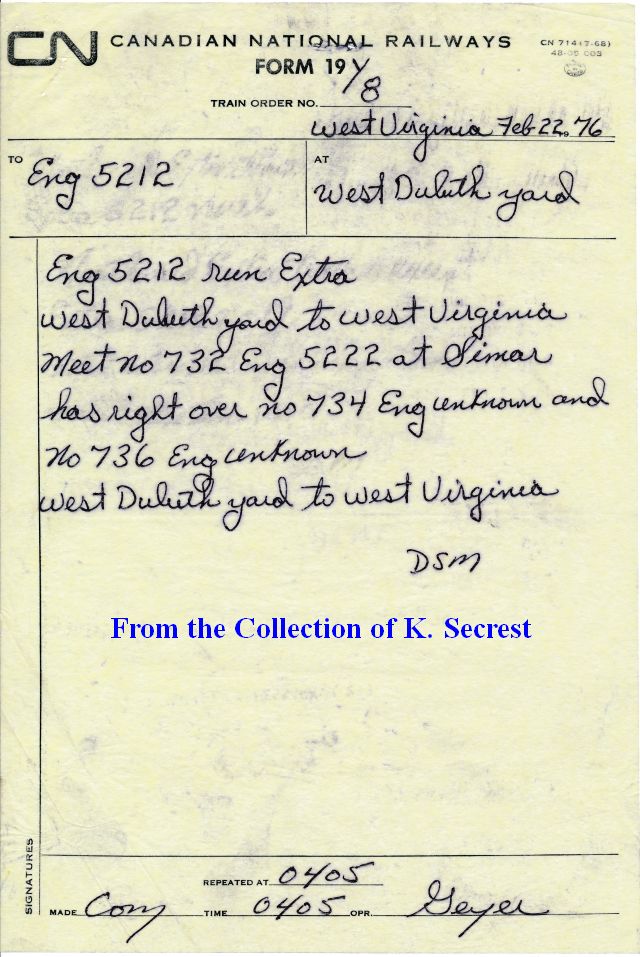 CN CANADIAN NATIONAL RAILWAYS
CN 714 (7-68)
FORM 19 Y
TRAIN ORDER NO. 8
West Virginia Feb 22, 76
TO
Eng 5212
AT
West Duluth yard
Eng 5212 run Extra
West Duluth yard to West Virginia
Meet No 732 Eng 5222 at Simar
has right over no 734 Eng unknown and
No 736 Eng unknown
West Duluth yard to West Virginia
DSM
From the Collection of K. Secrest
SIGNATURES
REPEATED AT 0405
MADE Com TIME 0405 OPR. Geyer